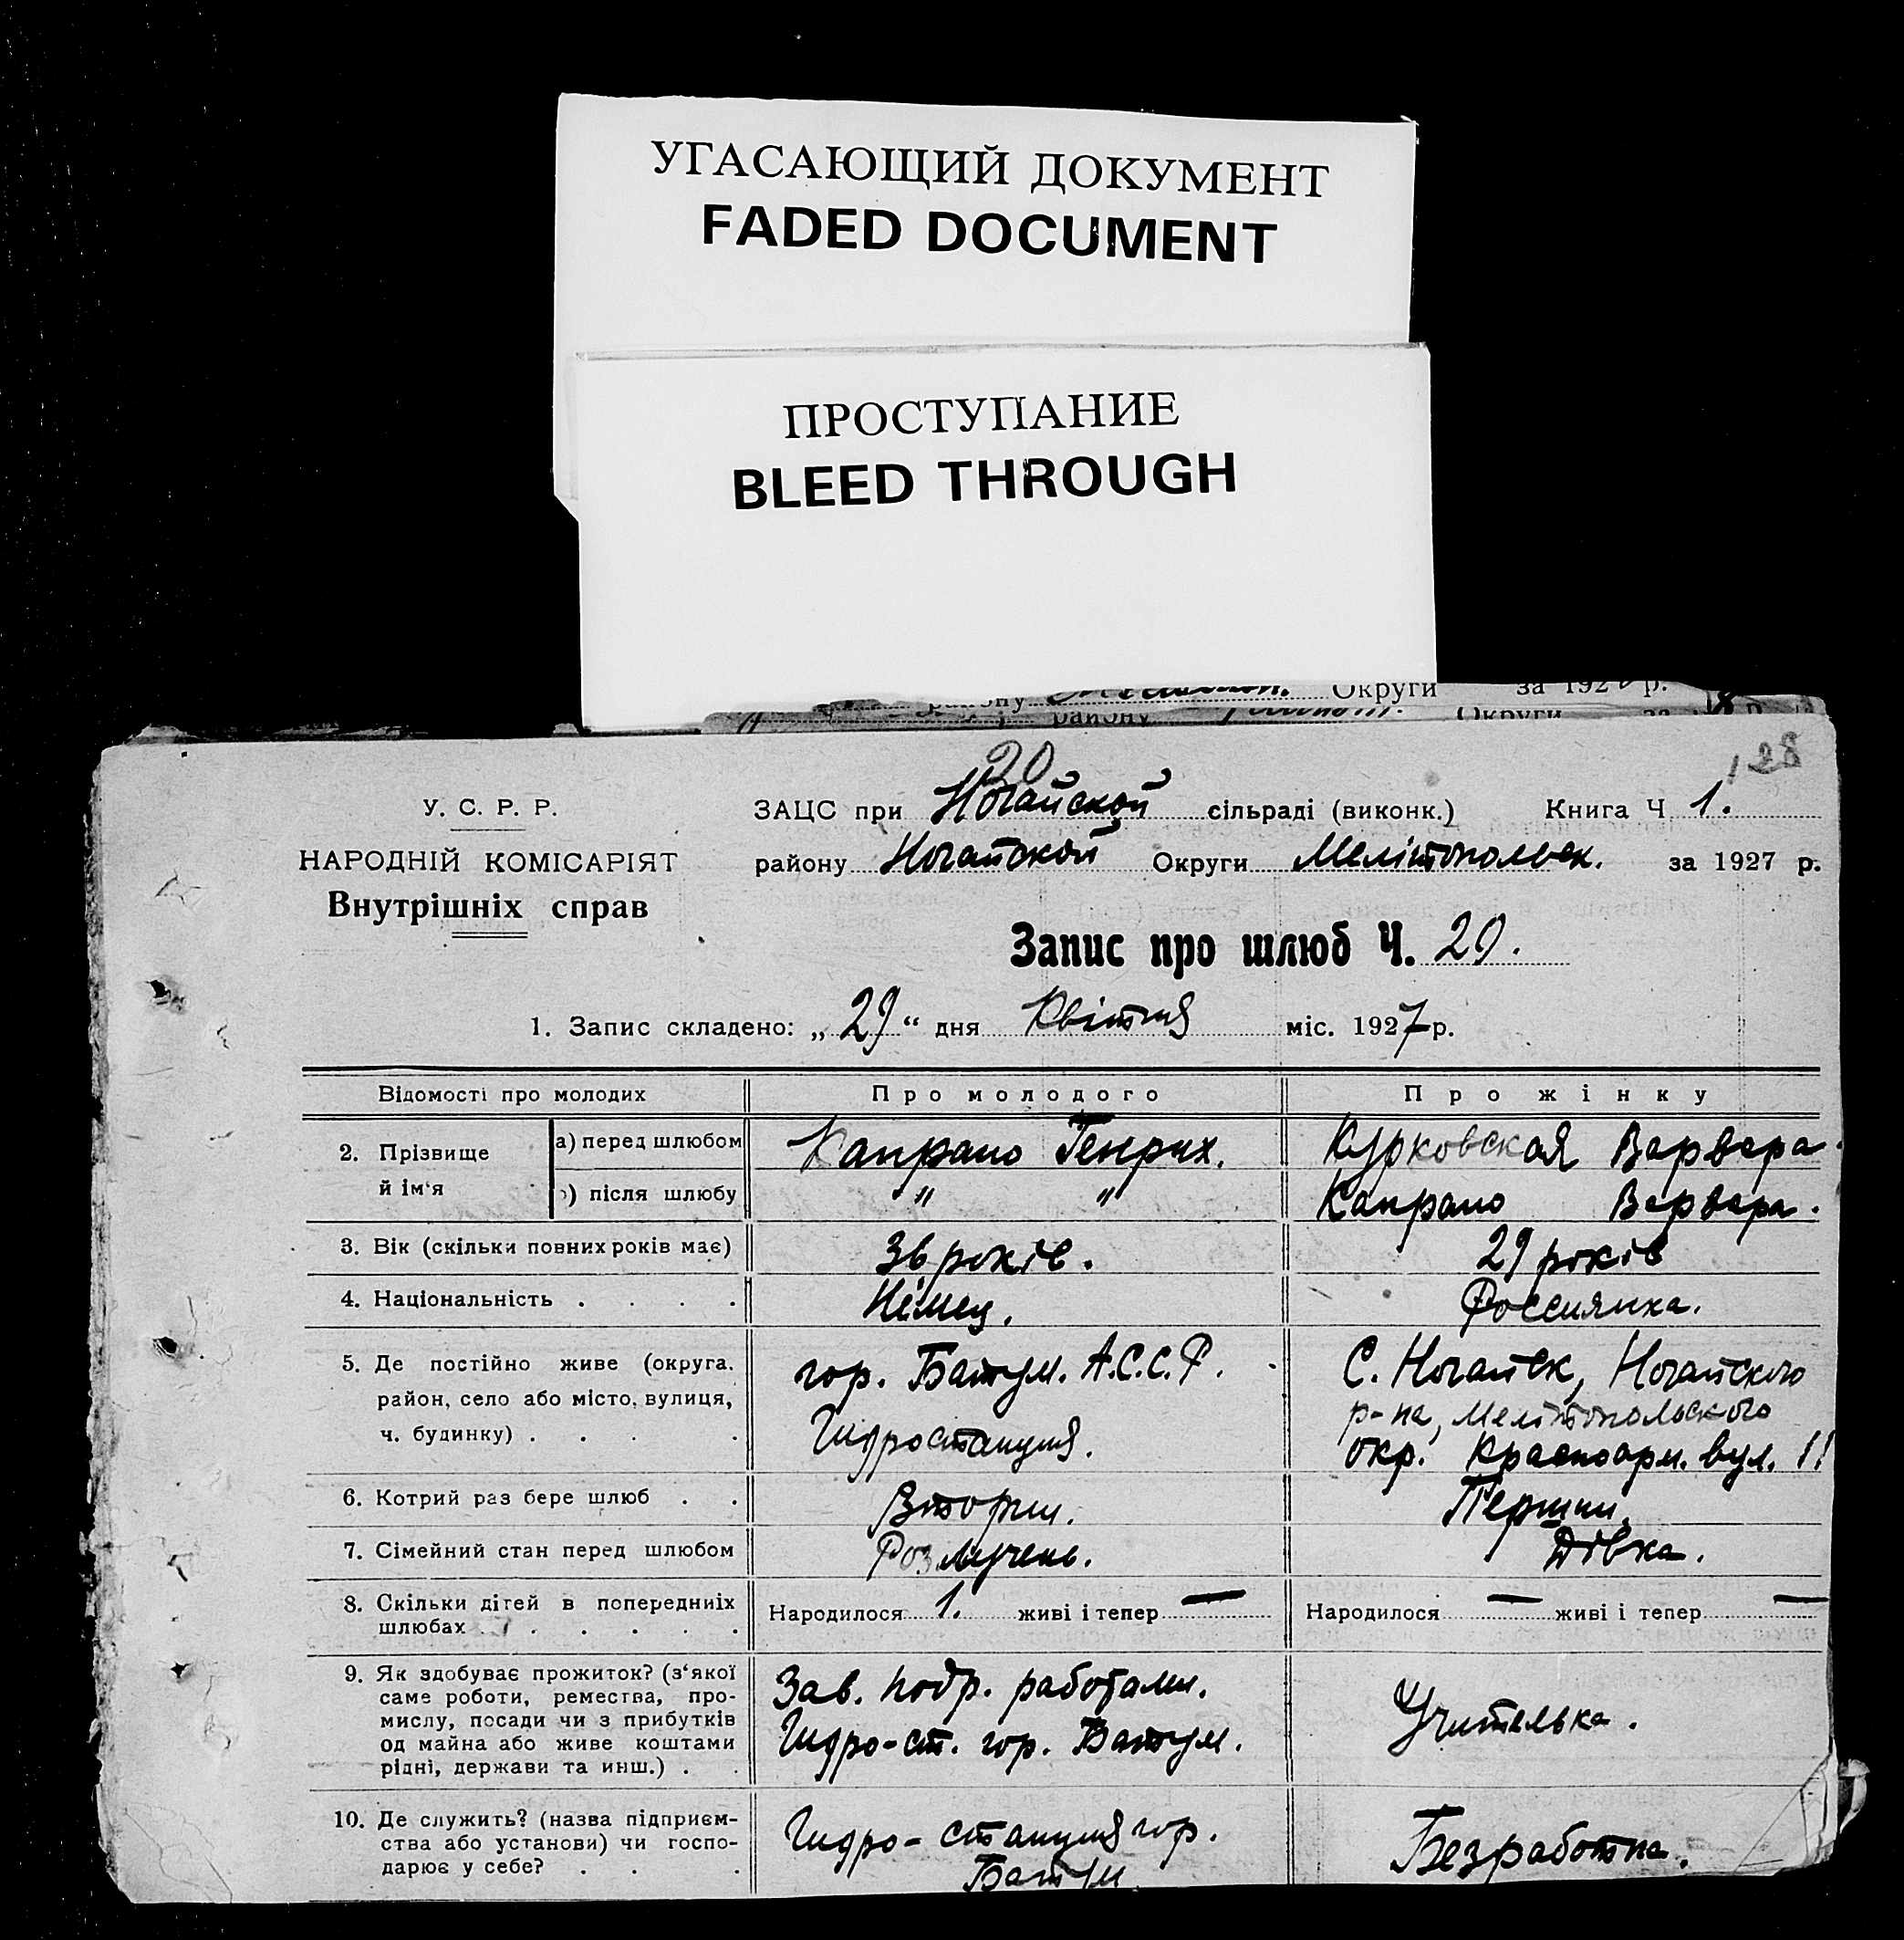 УГАСАЮЩИЙ ДОКУМЕНТ
FADED DOCUMENT
ПРОСТУПАНИЕ
BLEED THROUGH
району Округи за 192 р.
району Округи за р.
20
128
У. С. Р. Р.
ЗАЦС при Ногайской сільраді (виконк.) Книга Ч 1.
НАРОДНІЙ КОМІСАРІЯТ
району Ногайской Округи Мелітопольск. за 1927 р.
Внутрішніх справ
Запис про шлюб Ч. 20.
1. Запис складено: „29“ дня Квітня міс. 1927 р.
Відомості про молодих Про молодого Про жінку
2. Прізвище й ім'я а) перед шлюбом Капрано Генрих. Курковская Варвара.
) після шлюбу " " Капрано Варвара.
3. Вік (скільки повних років має) 36 років. 29 років
4. Національність . . . . Немец. Россиянка.
5. Де постійно живе (округа, гор. Батум. А.С.С.Р. С. Ногайск, Ногайского
район, село або місто, вулиця, р-на, Мелітопольского
ч. будинку) . . . . Гидростанция. окр. Красноарм. вул. 11
6. Котрий раз бере шлюб . . Вторий. Перший.
7. Сімейний стан перед шлюбом Розлучень. Дівка.
8. Скільки дітей в попередніх Народилося 1. живі і тепер — Народилося — живі і тепер —
шлюбах . . . . . .
9. Як здобуває прожиток? (з'якої Зав. подр. работами.
саме роботи, ремества, про-
мислу, посади чи з прибутків Учителька.
од майна або живе коштами Гидро-ст. гор. Батум.
рідні, держави та инш.) . .
10. Де служить? (назва підприєм- Гидро-станция гор.
ства або установи) чи госпо- Безработна.
дарює у себе? . . . Батум